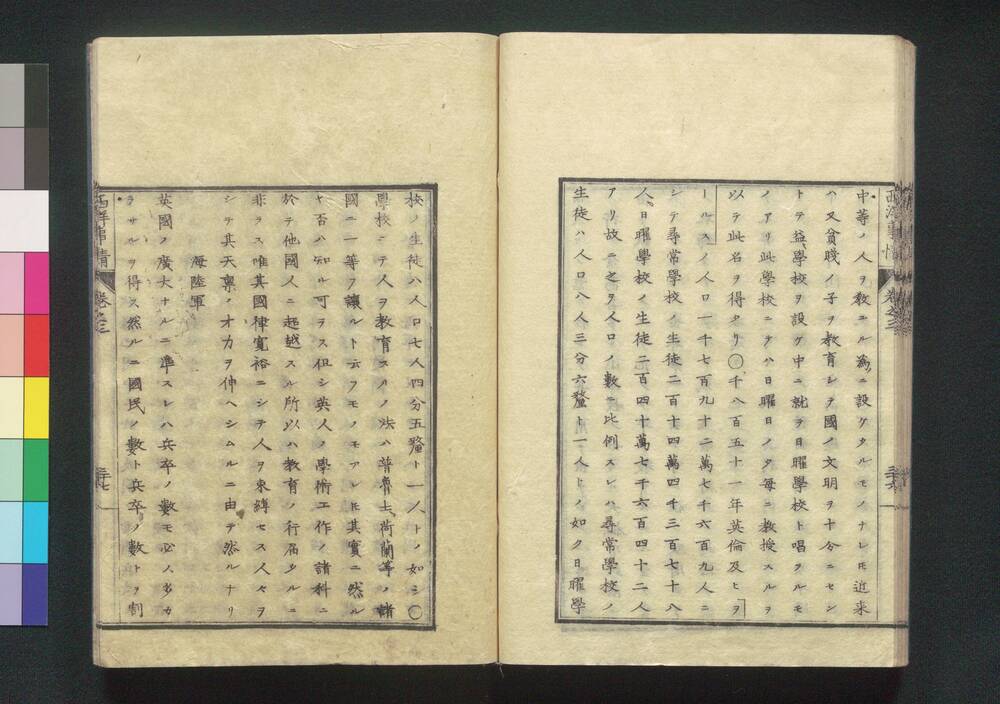 西洋事情 巻之三 三十六
中等ノ人ヲ教ユル為ニ設ケタルモノナレ𪜈近来
ハ又貧賤ノ子ヲ教育シテ國ノ文明ヲ十分ニセン
トテ益學校ヲ設ケ中ニ就テ日曜學校ト唱フルモ
ノアリ此學校ニテハ日曜日ノタ毎ニ教授スルヲ
以テ此名ヲ得タリ○千八百五十一年英倫及ヒヲ
ールスノ人口一千七百九十二萬七千六百九人ニ
シテ尋常學校ノ生徒二百十四萬四千三百七十八
人日曜學校ノ生徒二百四十萬七千六百四十二人
アリ故ニ之ヲ人口ノ數ニ比例スレハ尋常學校ノ
生徒ハ人口八人三分六釐ト一人トノ如ク日曜學
校ノ生徒ハ人口七人四分五釐ト一人トノ如シ○
學校ニテ人ヲ教育スルノ法ハ普魯士荷蘭等ノ諸
國ニ一等ヲ讓ルト云フモノモアレ𪜈其實ニ然ル
ヤ否ハ知ル可ラス但シ英人ノ學術工作ノ諸科ニ
於テ他國人ニ超越スル所以ハ教育ノ行届タルニ
非ラス唯其國律寛裕ニシテ人ヲ束縛セス人々ヲ
シテ其天稟ノ才力ヲ伸ヘシムルニ由テ然ルナリ
海陸軍
英國ノ廣大ナルニ準スレハ兵卒ノ數モ必ス多カ
ラサルヲ得ス然ルニ國民ノ數ト兵卒ノ數トヲ割
西洋事情 巻之三 三十七